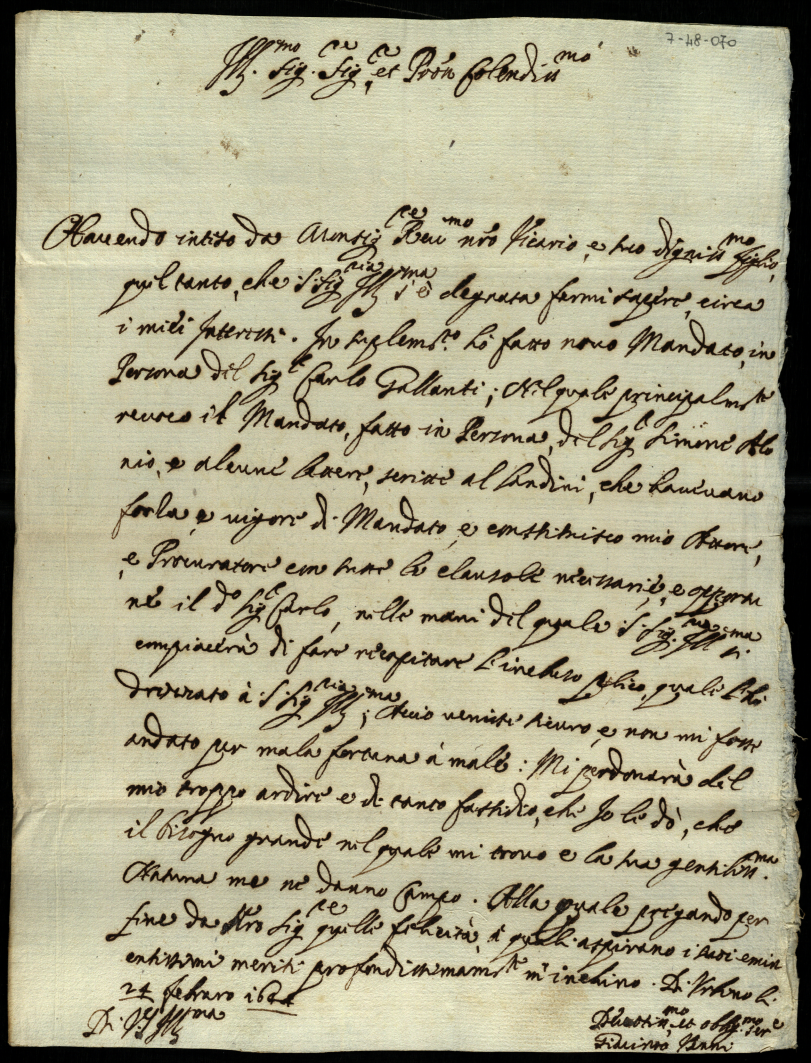 7-48-070
Ill.mo Sig. Sig.re et Pron Colendiss.mo
Havendo inteso da Monsig.re Rev.mo nro Vicario, e suo digniss.mo figlio,
quel tanto, che S. Sig.ria Ill.ma s'è degnata farmi sapere, circa
i miei Interessi. In suplem.to hò fatto novo Mandato, in
Persona del Sig.r Carlo Gallanti; Nel quale principalm.te
revoco il Mandato, fatto in Persona, del Sig.r Simone
nio, e alcune lettere, scritte al Landini, che havevano
forza, e vigore di Mandato, e constituisco mio Attore,
e Procuratore con tutte le clausole necessarie, e opportu
ne il d.o Sig.r Carlo, nelle mani del quale S. Sig.ria Ill.ma si
compiacerà di fare recapitare l'incluso plico, quale l'hò
drizzato à S. Sig.ria Ill.ma; Acciò venisse sicuro, e non mi fosse
andato per mala fortuna à male: Mi perdonarà del
mio troppo ardire e di tanto fastidio, che Io le dò, che
il bisogno grande nel quale mi trovo e la sua gentiliss.ma
Natura me ne danno Campo. Alla quale pregando per
fine da Nro Sig.re quelle felicità, à quali aspirano i suoi emin
entissimi meriti profondissimam.te m'inchino. Di Urbino li
24 febraro
Di V.S. Ill.ma
Devotiss.mo et oblig.mo Ser.e